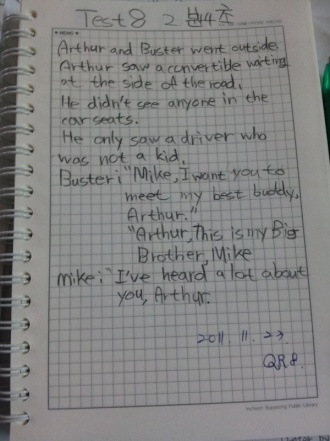 Test 8 2 분 4 초
MEMO
Arthur and Buster went outside.
Arthur saw a convertible waiting
at the side of the road.
He didn't see anyone in the
car seats.
He only saw a driver who
was not a kid.
Buster: "Mike, I want you to
meet my best buddy,
Arthur."
"Arthur, this is my Big
Brother, Mike
Mike: "I've heard a lot about
you, Arthur.
2011. 11. 23
QR 8.
Incheon Bupyeong Public Library